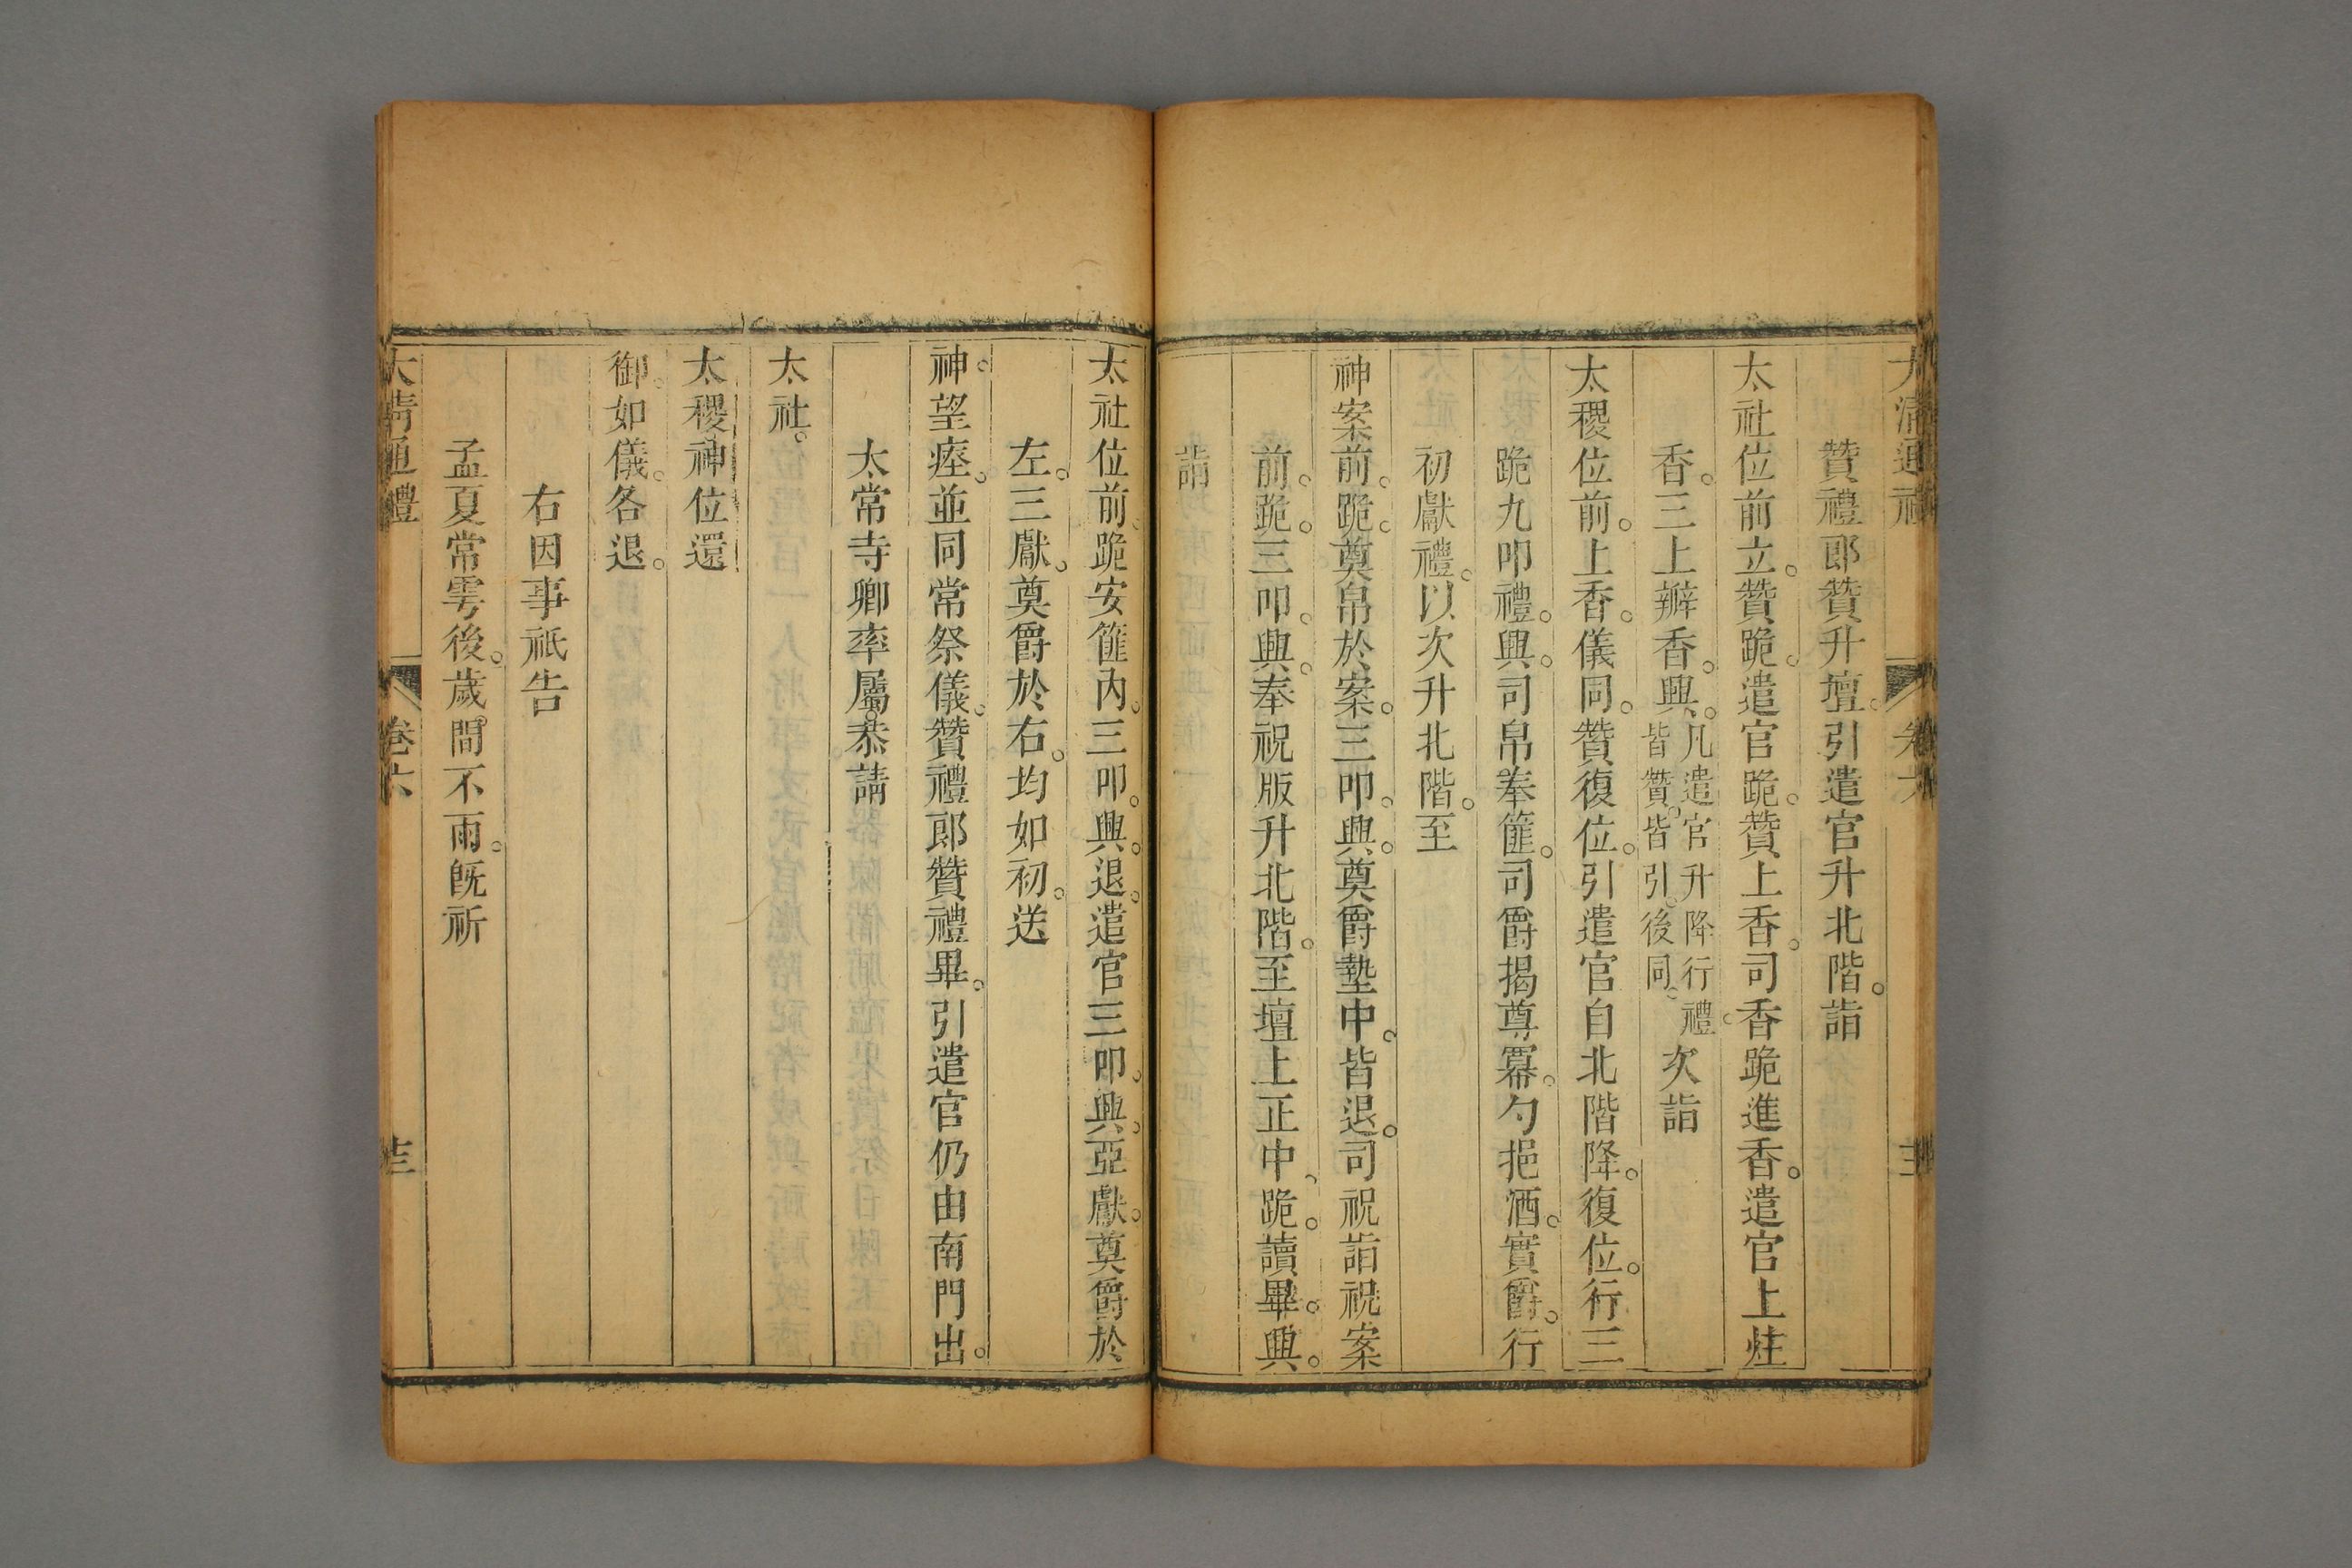 大清通禮 卷六
贊禮郎贊升壇。引遣官升北階。詣
太社位前立。贊跪。遣官跪。贊上香。司香跪進香。遣官上炷
香。三上瓣香。興。凡遣官升降行禮。皆贊。皆引。後同。次詣
太稷位前。上香。儀同。贊復位。引遣官自北階降。復位。行三
跪九叩禮。興。司帛奉篚。司爵揭尊冪。勺挹酒。實爵。行
初獻禮。以次升北階。至
神案前。跪。奠帛於案。三叩。興。奠爵墊中。皆退。司祝詣祝案
前。跪。三叩。興。奉祝版升北階。至壇上正中。跪。讀畢。興。
詣
太社位前。跪安篚內。三叩。興。退。遣官三叩。興。亞獻。奠爵於
左。三獻。奠爵於右。均如初。送
神。望瘞。並同常祭儀。贊禮郎贊禮畢。引遣官仍由南門出。
太常寺卿率屬恭請
太社。
太稷神位還
御。如儀。各退。
右因事祇告
孟夏常雩後。歲間不雨。旣祈
大清通禮 卷六